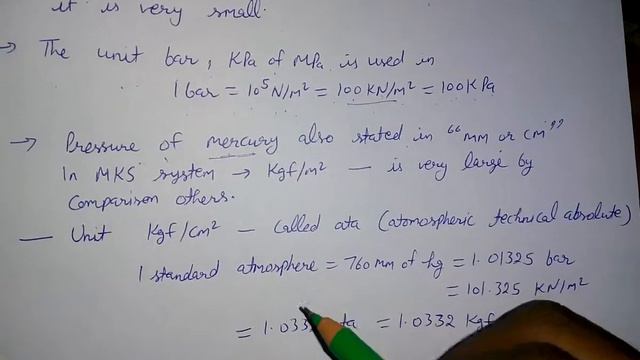 it is very small.
→ The unit bar, KPa of MPa is used in
1 bar = 10⁵ N/m² = 100 KN/m² = 100 KPa
→ Pressure of mercury also stated in "mm or cm"
In MKS system → Kgf/m² — is very large by
Comparison others.
— Unit Kgf/cm² – called ata (atomospheric technical absolute)
1 standard atmosphere = 760 mm of hg = 1.01325 bar
= 101.325 KN/m²
= 1.0332 = 1.0332 Kgf